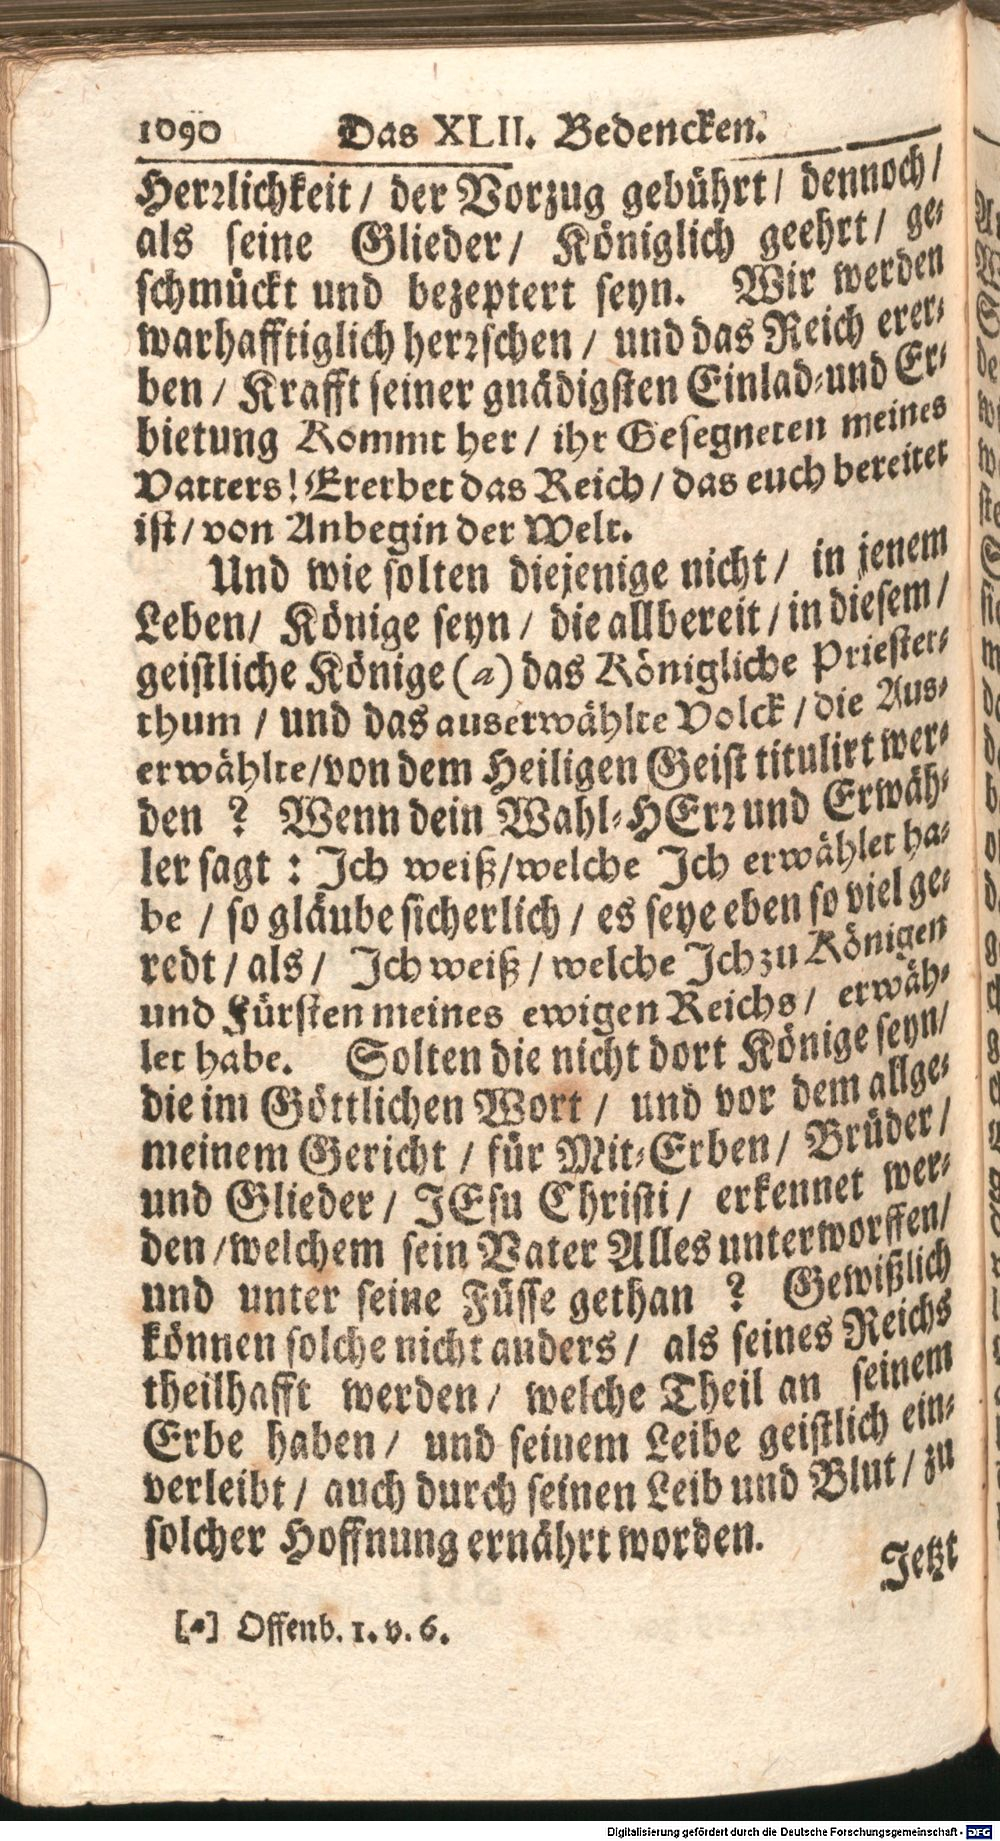 1090 Das XLII. Bedencken.
Herꝛlichkeit / der Vorzug gebührt / dennoch /
als seine Glieder / Königlich geehrt / ge-
schmückt und bezeptert seyn. Wir werden
warhafftiglich herꝛschen / und das Reich erer-
ben / Krafft seiner gnädigsten Einlad-und Er-
bietung Kommt her / ihr Gesegneten meines
Vatters! Ererbet das Reich / das euch bereitet
ist / von Anbegin der Welt.
Und wie solten diejenige nicht / in jenem
Leben / Könige seyn / die allbereit / in diesem /
geistliche Könige (a) das Königliche Priester-
thum / und das auserwählte Volck / die Aus-
erwählte / von dem Heiligen Geist titulirt wer-
den ? Wenn dein Wahl-HErꝛ und Erwäh-
ler sagt : Ich weiß / welche Ich erwählet ha-
be / so gläube sicherlich / es seye eben so viel ge-
redt / als / Ich weiß / welche Ich zu Königen
und Fürsten meines ewigen Reichs / erwäh-
let habe. Solten die nicht dort Könige seyn /
die im Göttlichen Wort / und vor dem allge-
meinem Gericht / für Mit-Erben / Brüder /
und Glieder / JEsu Christi / erkennet wer-
den / welchem sein Vater Alles unterworffen /
und unter seine Füsse gethan ? Gewißlich
können solche nicht anders / als seines Reichs
theilhafft werden / welche Theil an seinem
Erbe haben / und seinem Leibe geistlich ein-
verleibt / auch durch seinen Leib und Blut / zu
solcher Hoffnung ernährt worden.
Jetzt
[a] Offenb. 1. v. 6.
Digitalisierung gefördert durch die Deutsche Forschungsgemeinschaft - DFG